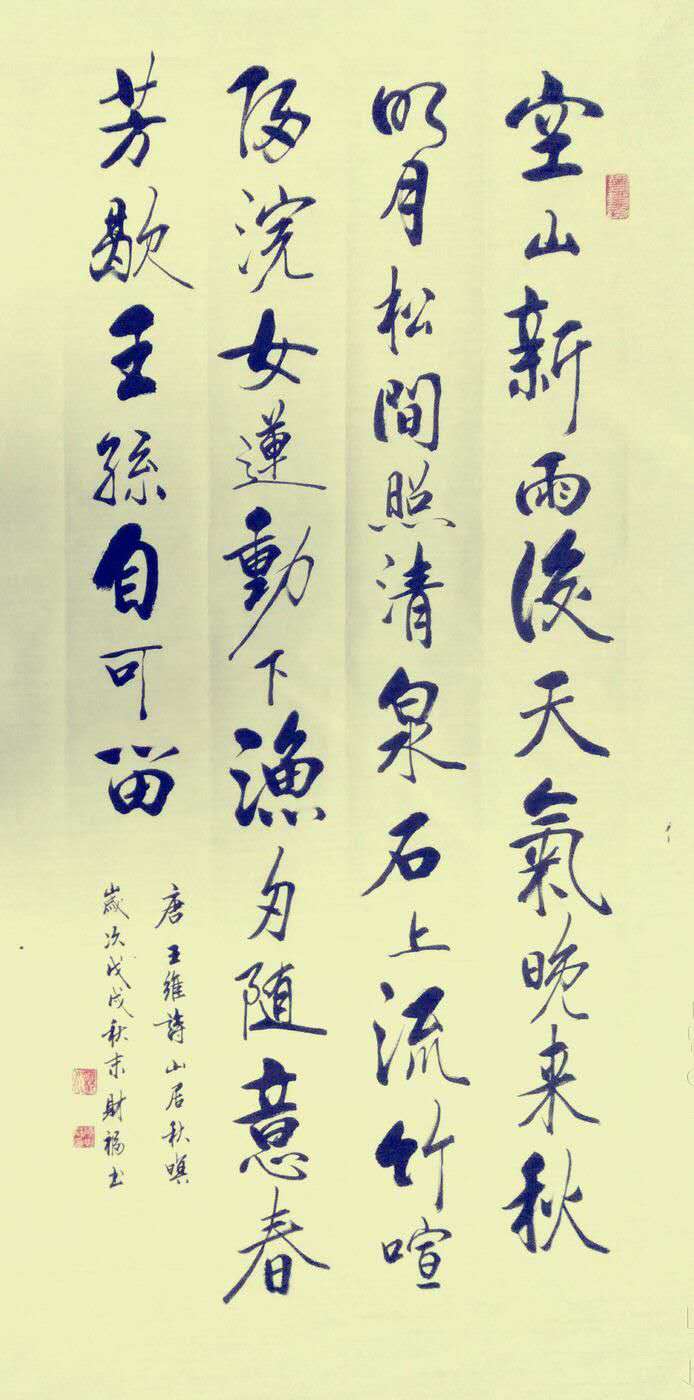 空山新雨後天氣晚来秋
明月松間照清泉石上流竹喧
歸浣女蓮動下漁舟随意春
芳歇王孫自可留
唐王維詩山居秋暝
歲次戊戌秋末財福书